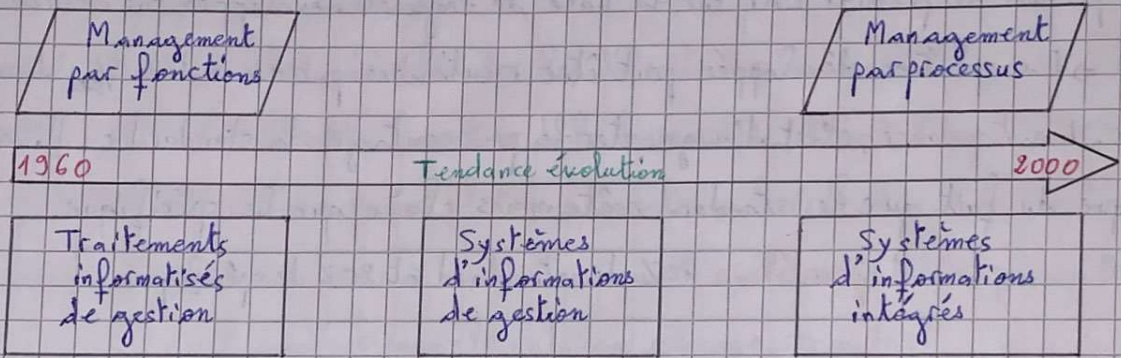 Management
par fonctions
Management
par processus
1960
Tendance évolution
2000
Traitements
informatisés
de gestion
Systèmes
d'informations
de gestion
Systèmes
d'informations
intégrés